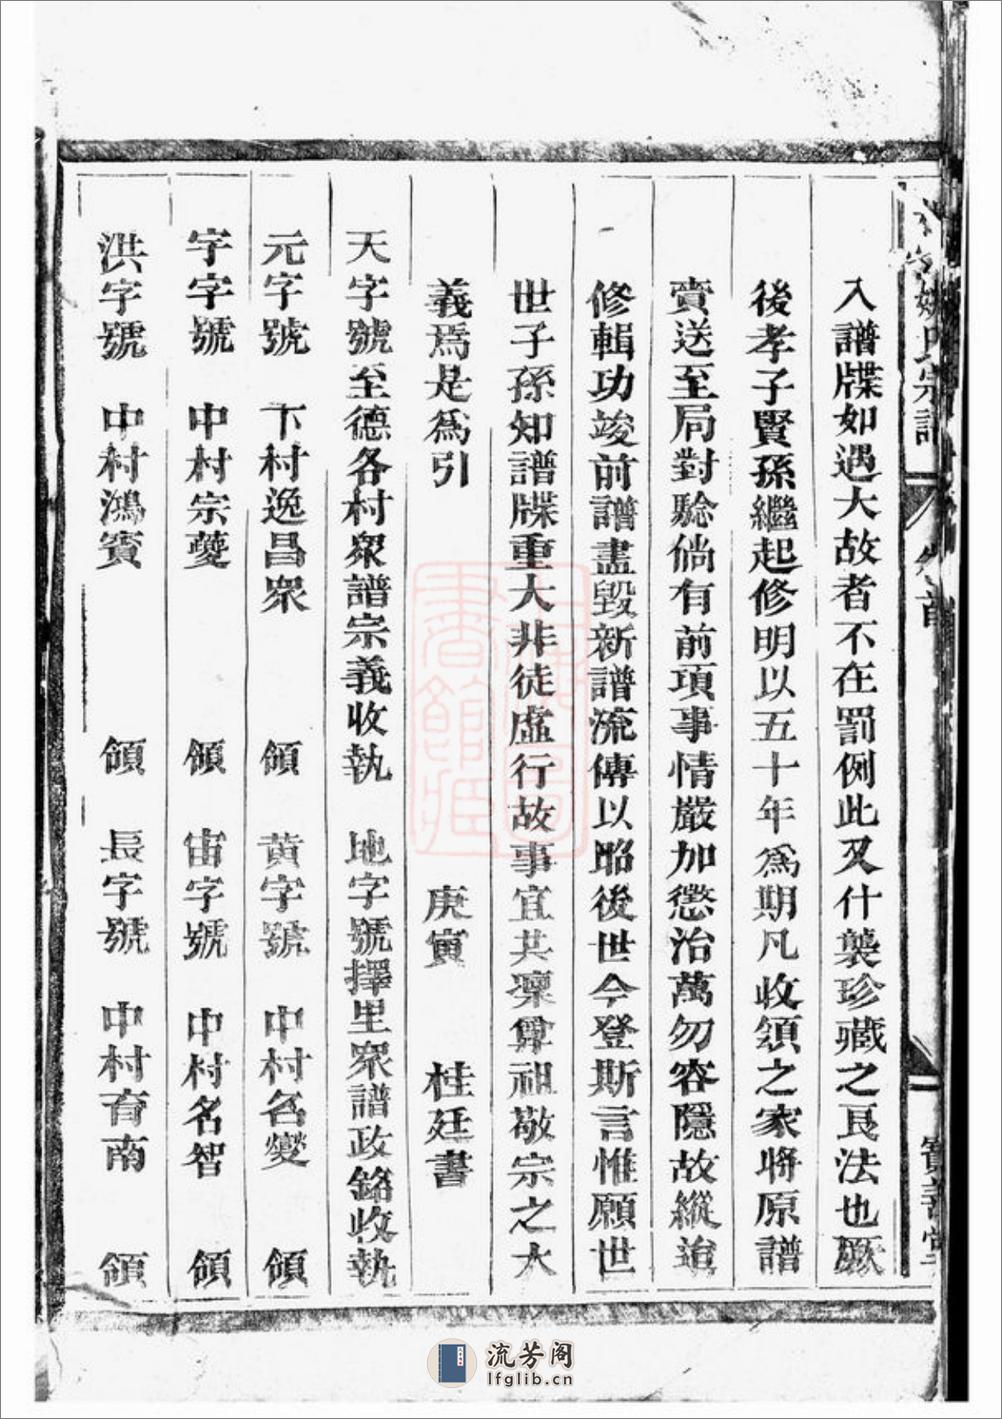 姚氏宗譜 卷首
入譜牒如遇大故者不在罰例此又什襲珍藏之良法也厥
後孝子賢孫繼起修明以五十年為期凡收領之家將原譜
賫送至局對驗倘有前項事情嚴加懲治萬勿容隱故縱迨
修輯功竣前譜盡毀新譜流傳以昭後世今登斯言惟願世
世子孫知譜牒重大非徒虛行故事宜共凜尊祖敬宗之大
義焉是為引 庚寅 桂廷書
天字號至德各村眾譜宗義收執 地字號擇里眾譜政銘收執
元字號 下村逸昌眾 領 黃字號 中村名燮 領
宇字號 中村宗夔 領 宙字號 中村名智 領
洪字號 中村鴻賓 領 長字號 中村育南 領
上海圖書館藏
流芳阁
lfglib.cn